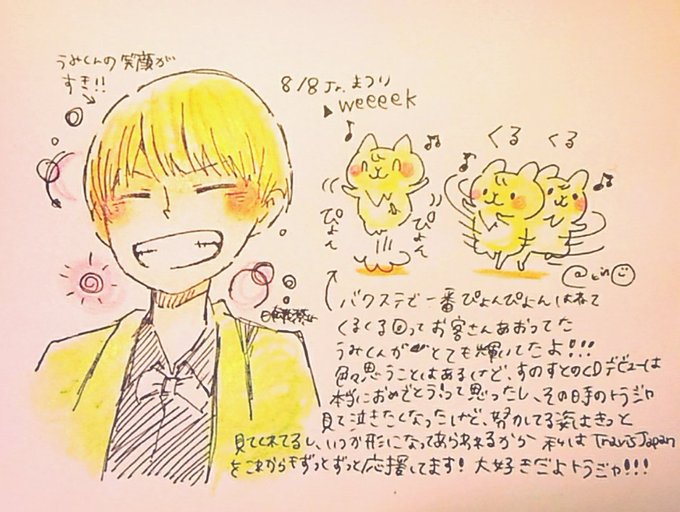 うみくんの笑顔が
すき!!
8/8 Jr. まつり
▶ weeeek
くる くる
ぴょん ぴょん
バクステで一番ぴょんぴょんはねて
くるくる回ってお客さんあおってた
うみくんがとても輝いてたよ!!!
色々思うことはあるけど、すのすとのCDデビューは
本当におめでとうって思ったし、その日寺のトラジャ
見て泣きたくなったけど、努力してる姿はきっと
見てくれてるし、いつか形になってあらわれるから 私はTravisJapan
をこれからもずっとずっと応援してます! 大好きだよトラジャ!!!